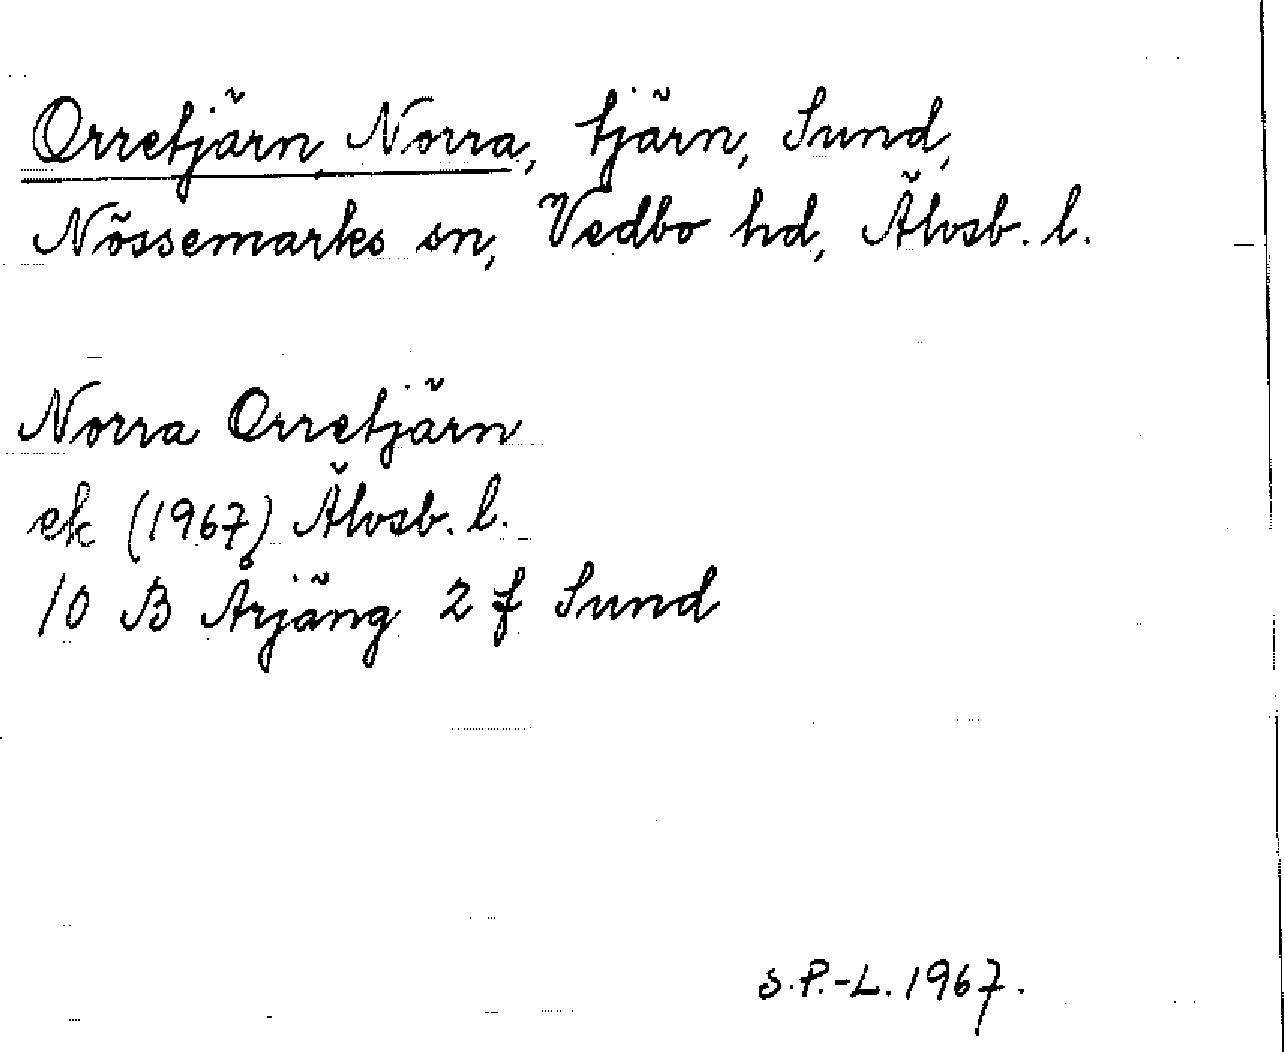 Orretjärn, Norra, tjärn, Sund,
Nössemarks sn, Vedbo hd, Älvsb. l.
Norra Orretjärn
ek (1967) Älvsb. l.
10 B Årjäng 2 f Sund
S.P.-L. 1967.